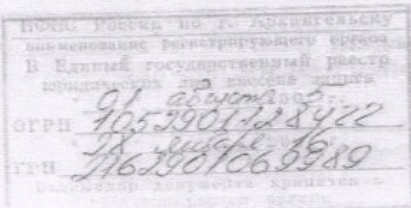 ИФНС России по г. Архангельску
наименование регистрирующего органа
В Единый государственный реестр
юридических лиц внесена запись
01 августа 5
ОГРН 1052901128422
28 января 16
ГРН 2162901069989